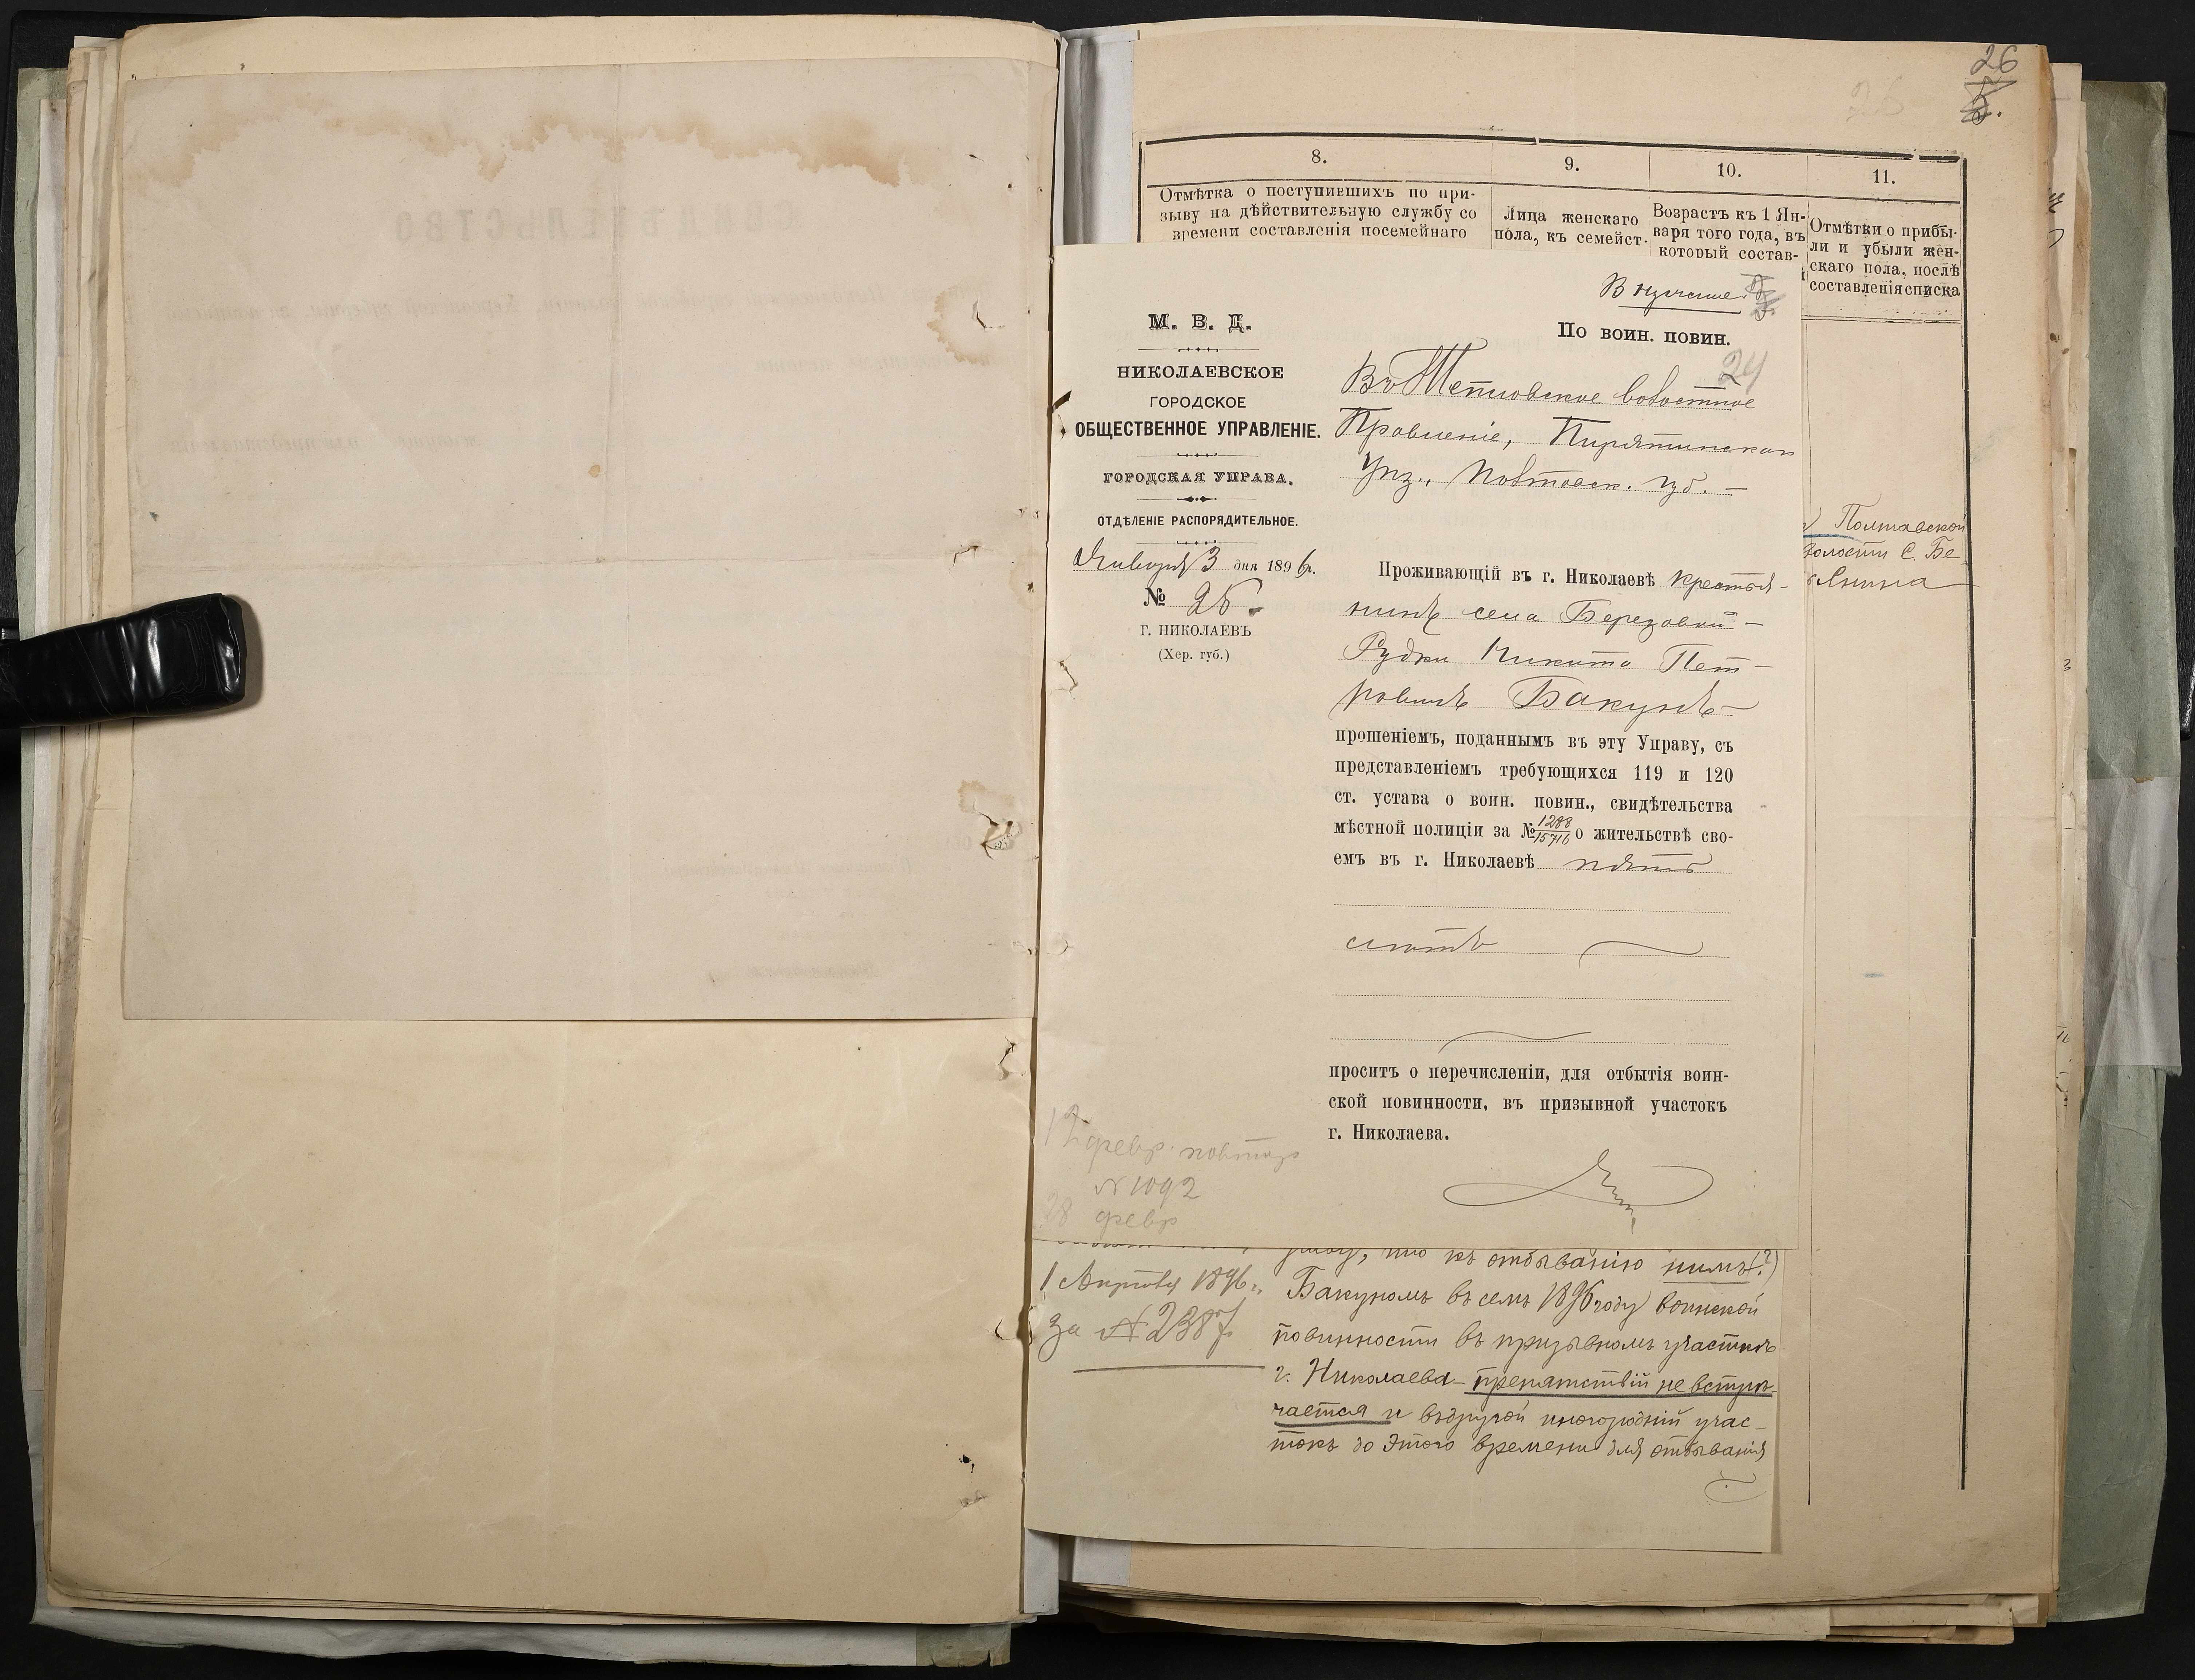 26
5.
26
8.
9.
10.
11.
Отмѣтка о поступившихъ по при-
зыву на дѣйствительную службу со
времени составленія посемейнаго
Лица женскаго
пола, къ семейст-
Возрастъ къ 1 Ян-
варя того года, въ
который состав-
Отмѣтки о прибы-
ли и убыли жен-
скаго пола, послѣ
составленія списка
Полтавской
волости С. Бе
М. В. Д.
НИКОЛАЕВСКОЕ
ГОРОДСКОЕ
ОБЩЕСТВЕННОЕ УПРАВЛЕНІЕ.
ГОРОДСКАЯ УПРАВА.
ОТДѢЛЕНІЕ РАСПОРЯДИТЕЛЬНОЕ.
Января 3 дня 1896 г.
№ 25
Г. НИКОЛАЕВЪ
(Хер. губ.)
По воин. повин.
24
волостное
Правленіе, Пирятинскаго
Уѣз., Полтавск. губ. —
Проживающій въ г. Николаевѣ крестья-
нинъ села Березовой —
Рудки Никита Пет-
ровичъ Бакунъ —
прошеніемъ, поданнымъ въ эту Управу, съ
представленіемъ требующихся 119 и 120
ст. устава о воин. повин., свидѣтельства
мѣстной полиціи за № 1288/15716 о жительствѣ сво-
емъ въ г. Николаевѣ пять
лѣтъ
проситъ о перечисленіи, для отбытія воин-
ской повинности, въ призывной участокъ
г. Николаева.
12 февр. повтор
№ 1092
28 февр
что къ отбыванію нимъ (?)
1 Апрѣля 1896 г.
за № 2387
Бакуномъ въ семъ 1896 году воинской
повинности въ призывномъ участкѣ
г. Николаева — препятствій не встрѣ-
чается и въ другой иногородній учас-
токъ до этого времени для отбыванія